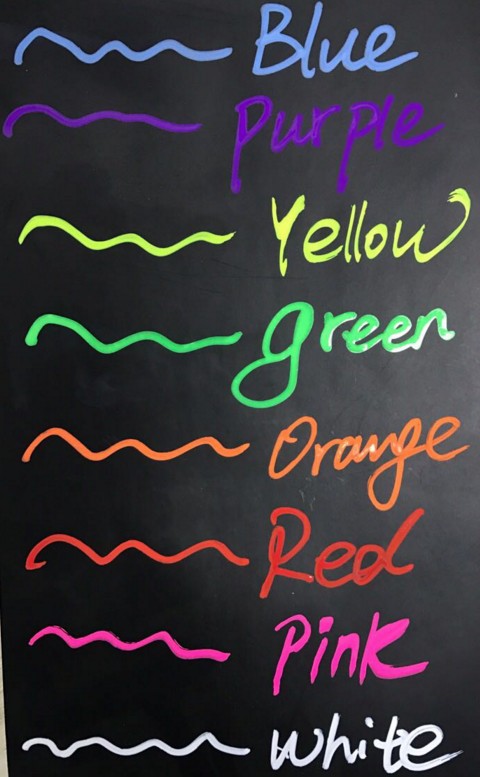 Blue
Purple
Yellow
green
Orange
Red
Pink
White